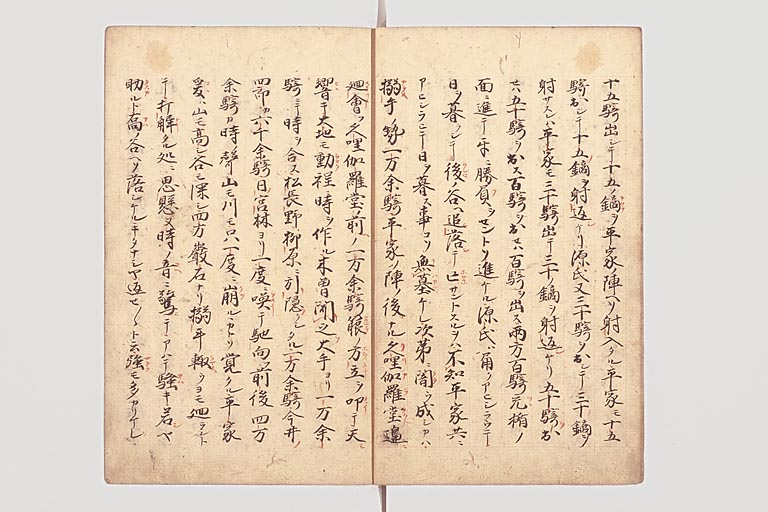 十五騎出シテ十五ノ鏑ヲ平家ノ陣ヘソ射入タル平家モ十五
騎出シテ十五ノ鏑ヲ射返ケリ源氏又三十騎ヲ出シテ三十ノ鏑ヲ
射サスレハ平家モ三十騎出テ三十ノ鏑ヲ射返ケリ五十騎出
セハ五十騎ヲ出ス百騎ヲ出セハ百騎ヲ出ス両方百騎充楯ノ
面ニ進テ勝負ヲセントソ進ケル源氏ハ角アヒシラウテ
日ヲ暮シテ後ノ谷ヘ追落テ亡サントスルヲハ不知平家共ニ
アヒシラヒテ日ヲ暮ス事コソ無墓ケレ次第ニ闇ウ成シカハ
搦手ノ勢一万余騎平家ノ陣ノ後ナル久哩伽羅堂ノ邉
廻會ツヽ久哩伽羅堂ノ前ノ一万余騎箙ノ方立ヲ叩テ天
響キ大地モ動程ニ時ヲソ作ル木曽聞之大手ヨリ一万余
騎ニテ時ヲ合ス松長野柳原ニ引隠シタル一万余騎今井ノ
四郎カ六千余騎日ノ宮林ヨリ一度ニ喚テ馳向前後四万
余騎カ時ノ聲山モ川モ只一度ニ崩ルヽカトソ覚タル平家
爰ハ山モ高シ谷モ深シ四方巌石ナリ搦手輙クヨモ廻ラシト
テ打解タル処ニ思懸ヌ時ノ音ニ驚テアハテ騒キ若ヤ
助ルト高ノ谷ヘソ落シケルキタナシヤ返セ〱ト云族モ多カリケレト